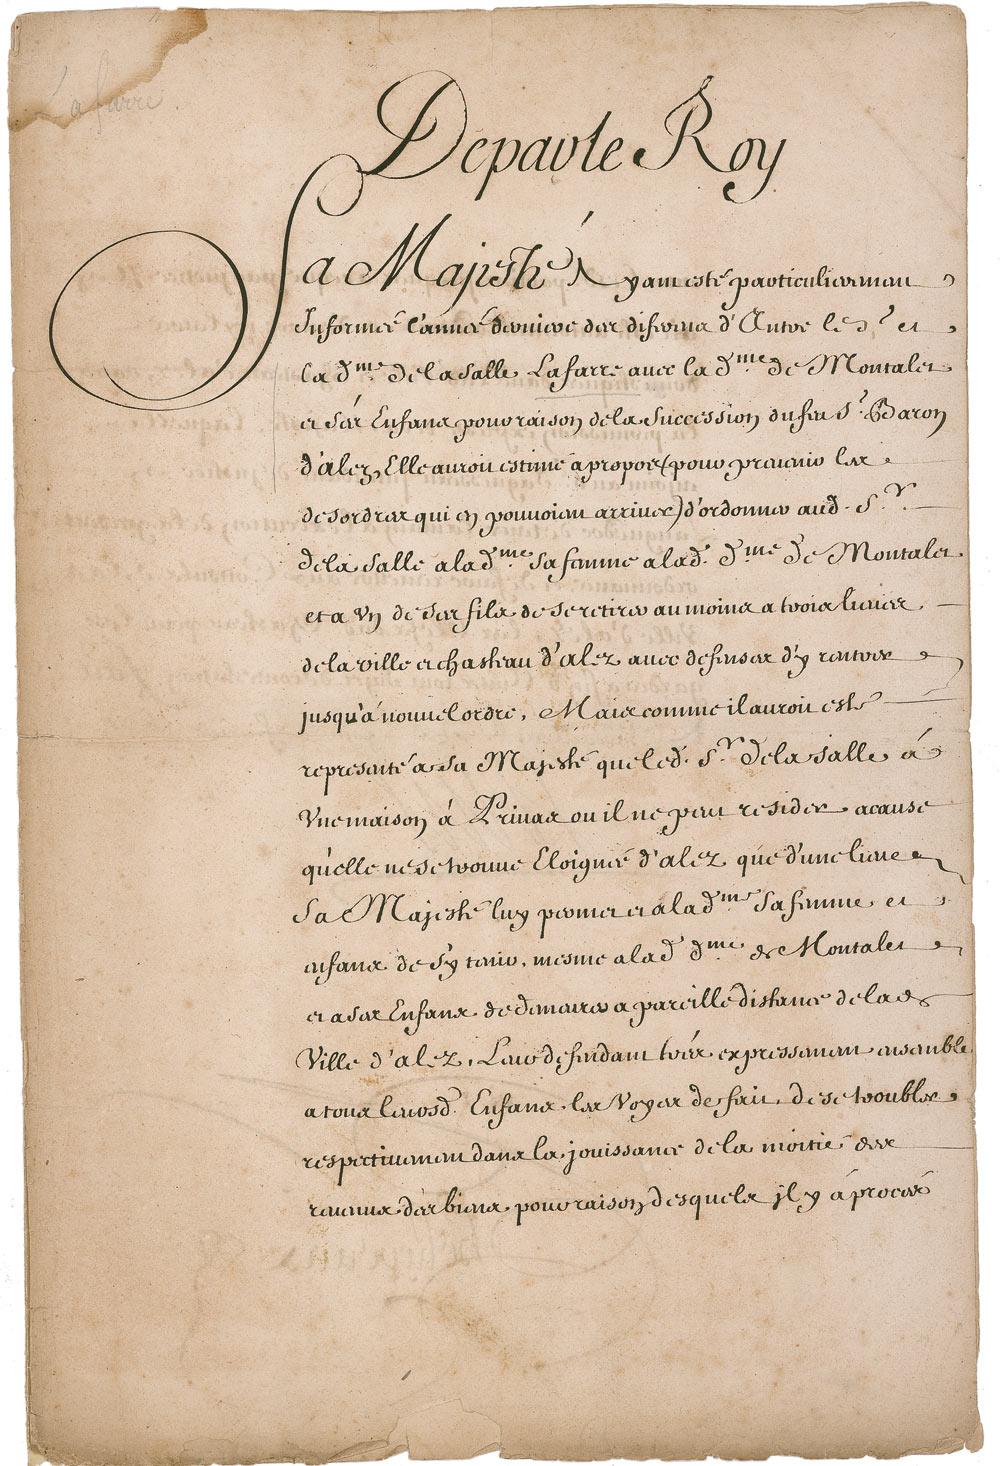 Lafarre.
De par le Roy
Sa Majesté Ayant esté particulierement
Informée l'année derniere des diferens d'Entre le Sr. et
la dme. de la Salle Lafarre avec la dme. de Montalet
et ses Enfans pour raison de la Succession du feu Sr. Baron
d'alez, Elle auroit estimé a propos (pour prevenir les
desordres qui en pouvoient arriver) d'ordonner aud. Sr.
de la Salle a lad. dme. sa femme a lad. dme. de Montalet
et a Un de ses fils de se retirer au moins a trois lieües
de la ville et chasteau d'alez avec defenses d'y rentrer
jusqu'à nouvel ordre, Mais comme il auroit esté
representé a Sa Majesté que led. Sr. de la Salle á
Une maison á Privas ou il ne peut resider a cause
qu'elle ne se trouve Eloignée d'alez que d'une lieüe
Sa Majesté luy permet et a lad. dme. sa femme et
enfans de s'y tenir, mesme a lad. dme. de Montalet
et a ses Enfans de demeurer a pareille distance de lad.
Ville d'alez, Leur defendant trés expressement ensemble
a tous leursd. Enfans les Voyes de fait, de se troubler
respectivement dans la jouissance de la moitié des
revenus des biens pour raison desquels il y á procés